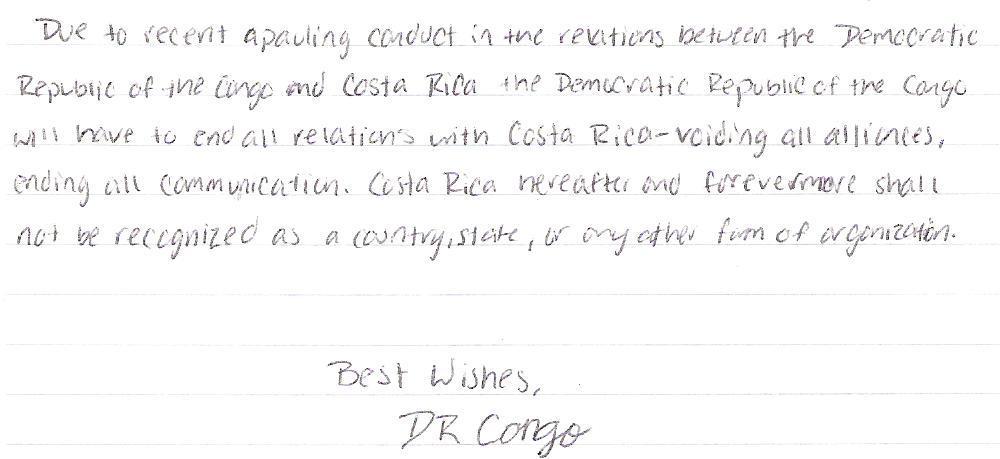 Due to recent apauling conduct in the relations between the Democratic
Republic of the Congo and Costa Rica the Democratic Republic of the Congo
will have to end all relations with Costa Rica-voiding all alliances,
ending all communication. Costa Rica hereafter and forevermore shall
not be recognized as a country, state, or any other form of organization.
Best Wishes,
DR Congo